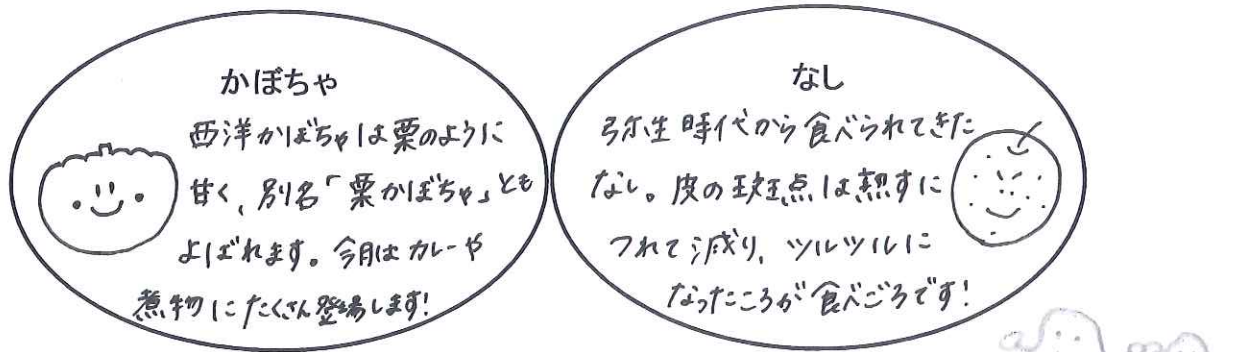 かぼちゃ
西洋かぼちゃは栗のように
甘く、別名「栗かぼちゃ」とも
よばれます。今月はカレーや
煮物にたくさん登場します!
なし
弥生時代から食べられてきた
なし。皮の斑点は熟すに
つれて減り、ツルツルに
なったころが食べごろです!